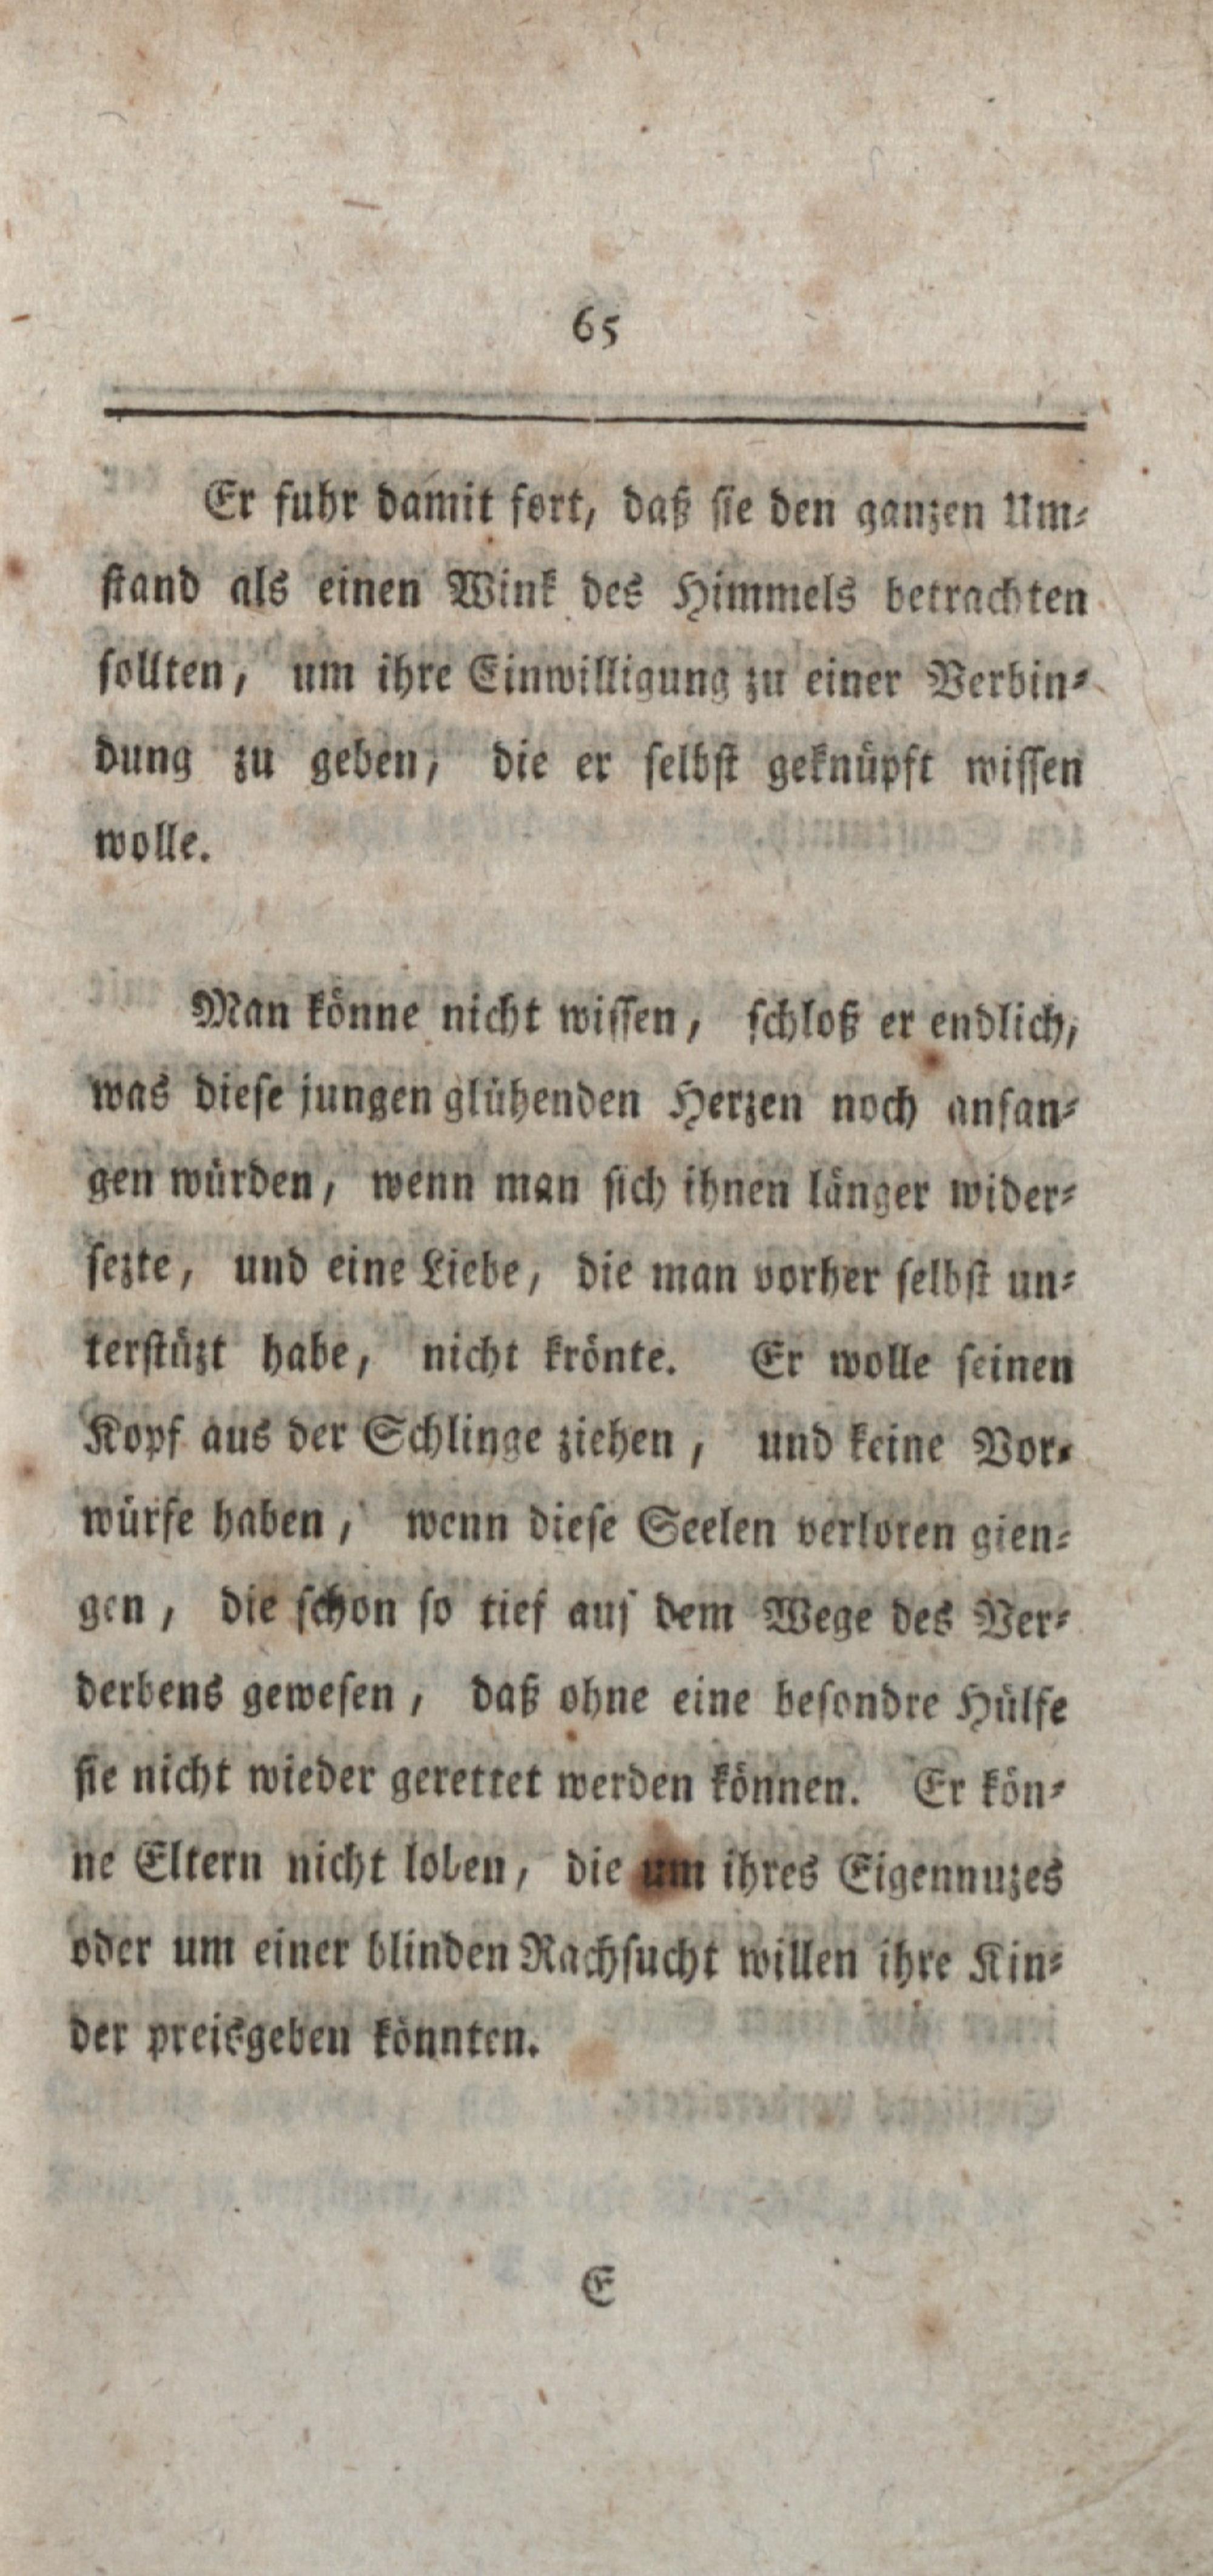 65
Er fuhr damit fort, daß sie den ganzen Um-
stand als einen Wink des Himmels betrachten
sollten, um ihre Einwilligung zu einer Verbin-
dung zu geben, die er selbst geknüpft wissen
wolle.
Man könne nicht wissen, schloß er endlich,
was diese jungen glühenden Herzen noch anfan-
gen würden, wenn man sich ihnen länger wider-
sezte, und eine Liebe, die man vorher selbst un-
terstüzt habe, nicht krönte. Er wolle seinen
Kopf aus der Schlinge ziehen, und keine Vor-
würfe haben, wenn diese Seelen verloren gien-
gen, die schon so tief auf dem Wege des Ver-
derbens gewesen, daß ohne eine besondre Hülfe
sie nicht wieder gerettet werden können. Er kön-
ne Eltern nicht loben, die um ihres Eigennuzes
oder um einer blinden Rachsucht willen ihre Kin-
der preisgeben könnten.
E